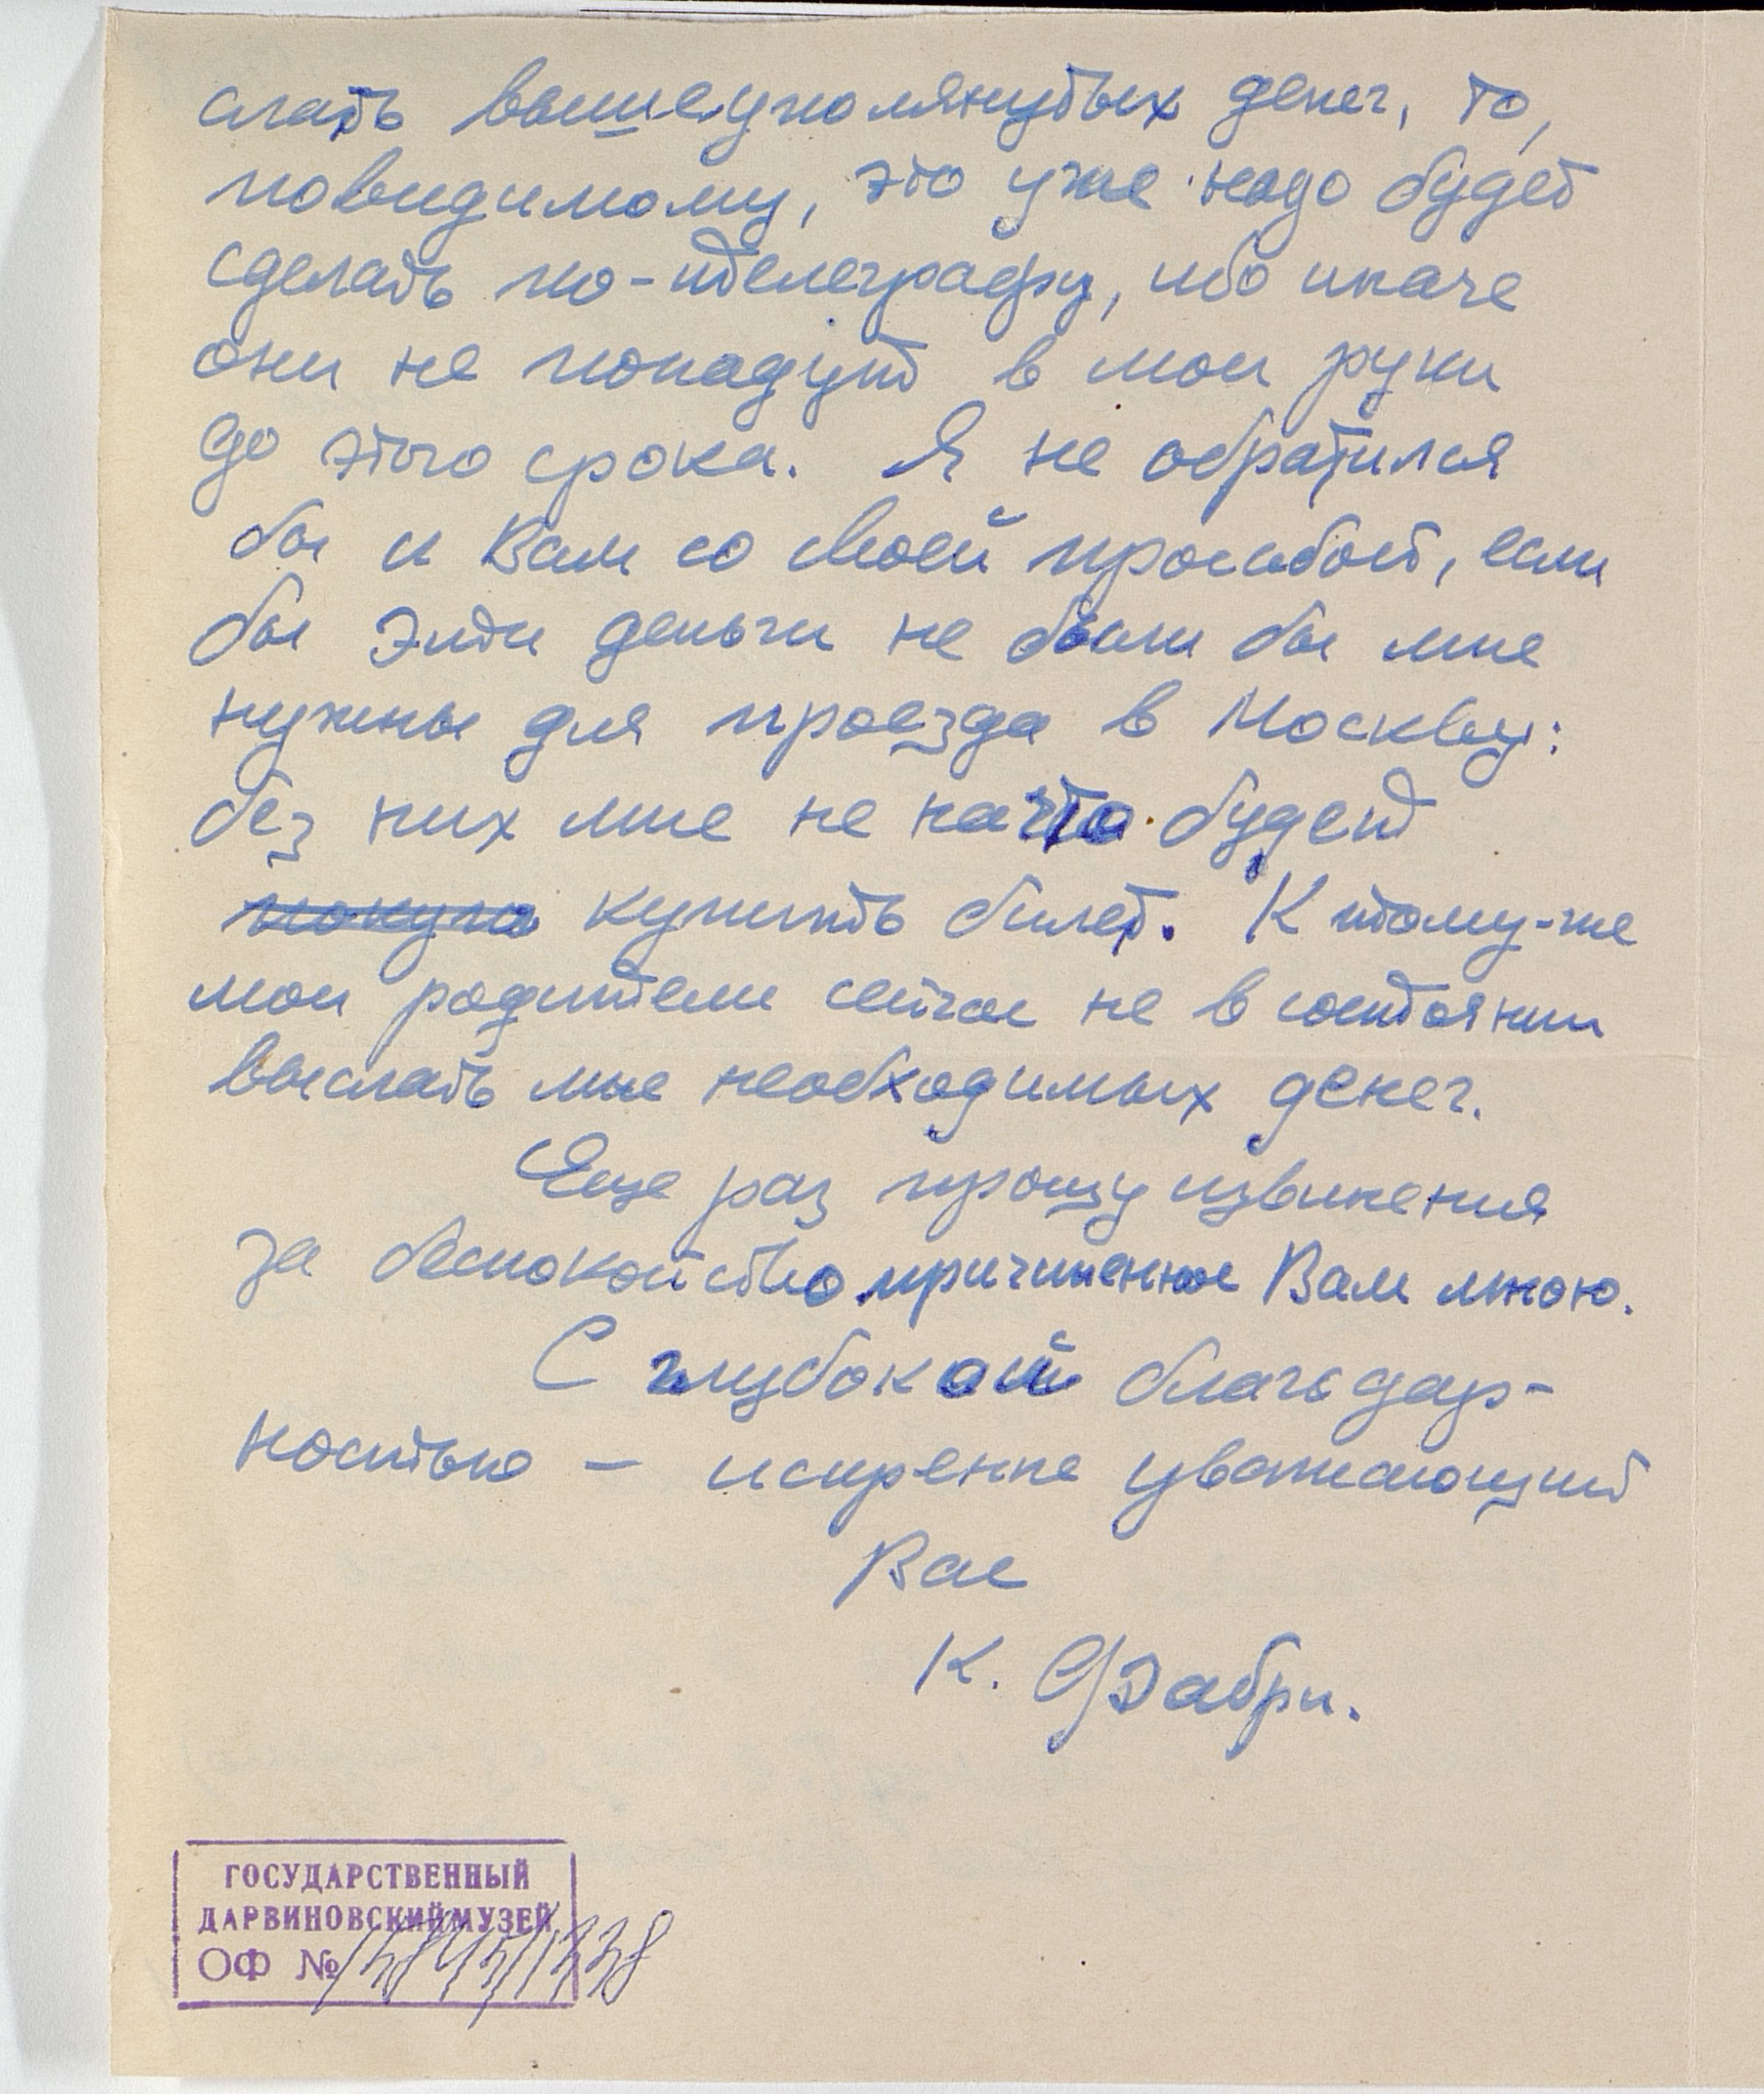 слать вышеупомянутых денег, то,
повидимому, это уже надо будет
сделать по-телеграфу, ибо иначе
они не попадут в мои руки
до этого срока. Я не обратился
бы к Вам со своей просьбой, если
бы эти деньги не были бы мне
нужны для проезда в Москву:
без них мне не на что будет
покупа купить билет. К тому-же
мои родители сейчас не в состоянии
выслать мне необходимых денег.
Еще раз прошу извинения
за беспокойство причиненное Вам мною.
С глубокой благодар-
ностью – искренне уважающий
Вас
К. Фабри.
ГОСУДАРСТВЕННЫЙ
ДАРВИНОВСКИЙ МУЗЕЙ
ОФ №